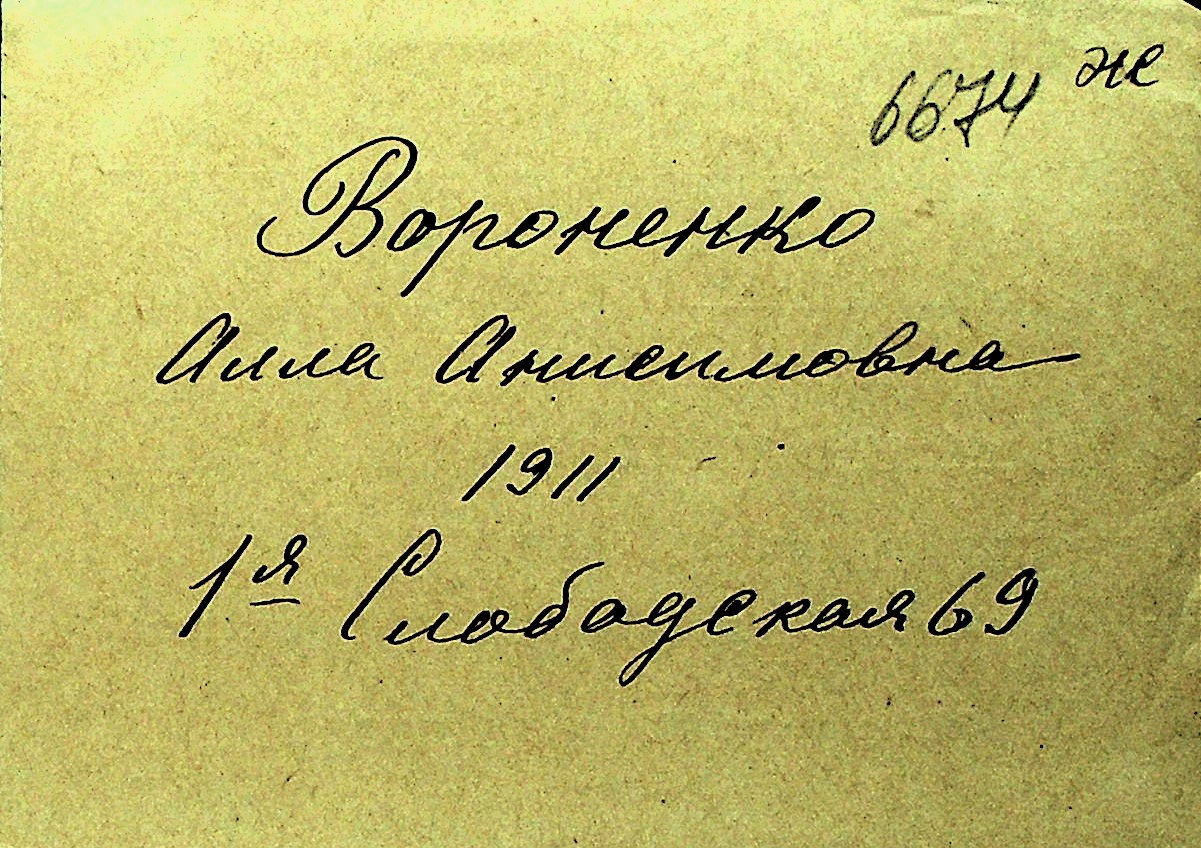 6674 ж
Вороненко
Алла Анисимовна
1911
1я Слободская 69